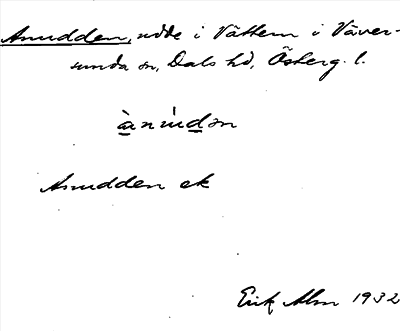 Anudden, udde i Vättern i Väver-
sunda sn, Dals hd, Österg. l.
Anudden ek
Erik Alm 1932